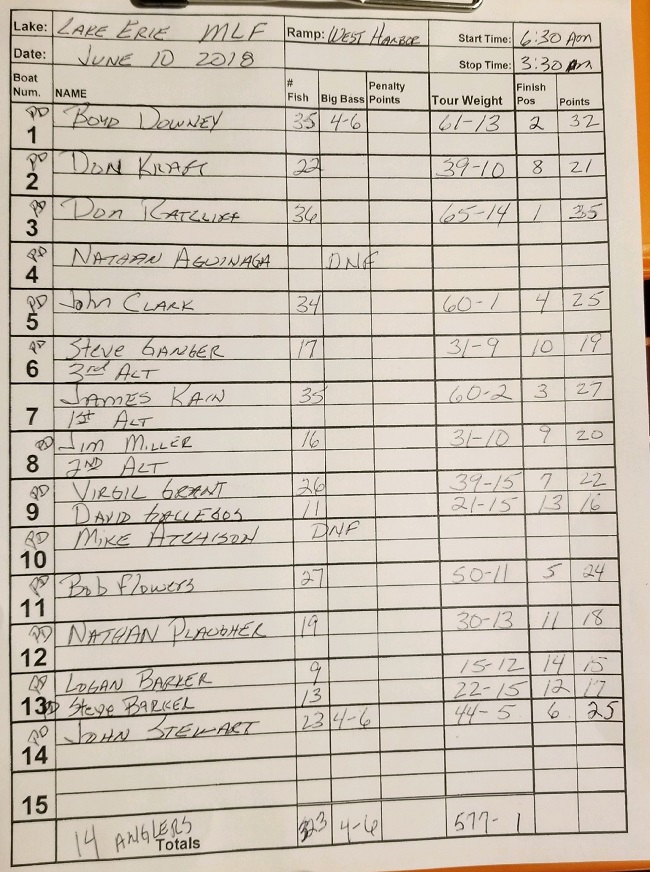 Lake: LAKE ERIE MLF Ramp: WEST HARBOR Start Time: 6:30 Am
Date: JUNE 10 2018 Stop Time: 3:30 Pm
Boat Num. NAME # Fish Big Bass Penalty Points Tour Weight Finish Pos Points
PD 1 Boyd Downey 35 4-6 61-13 2 32
PD 2 DON KRAFT 22 39-10 8 21
PD 3 Don RATCLIFF 36 65-14 1 35
PD 4 NATHAN AGUINAGA DNF
PD 5 John CLARK 34 60-1 4 25
PD 6 Steve GANGER 17 31-9 10 19
3rd ALT
7 JAMES KAIN 35 60-2 3 27
1st ALT
PD 8 Jim MILLER 16 31-10 9 20
2ND ALT
PD 9 VIRGIL GRANT 26 39-15 7 22
DAVID GALLEGOS 11 21-15 13 16
PD 10 MIKE ATCHISON DNF
PD 11 Bob Flowers 27 50-11 5 24
PD 12 NATHAN PLAUGHER 19 30-13 11 18
PD 13 LOGAN BARKER 9 15-12 14 15
PD Steve BARKER 13 22-15 12 17
PD 14 JOHN STEWART 23 4-6 44-5 6 25
15
14 ANGLERS Totals 323 4-6 577-1